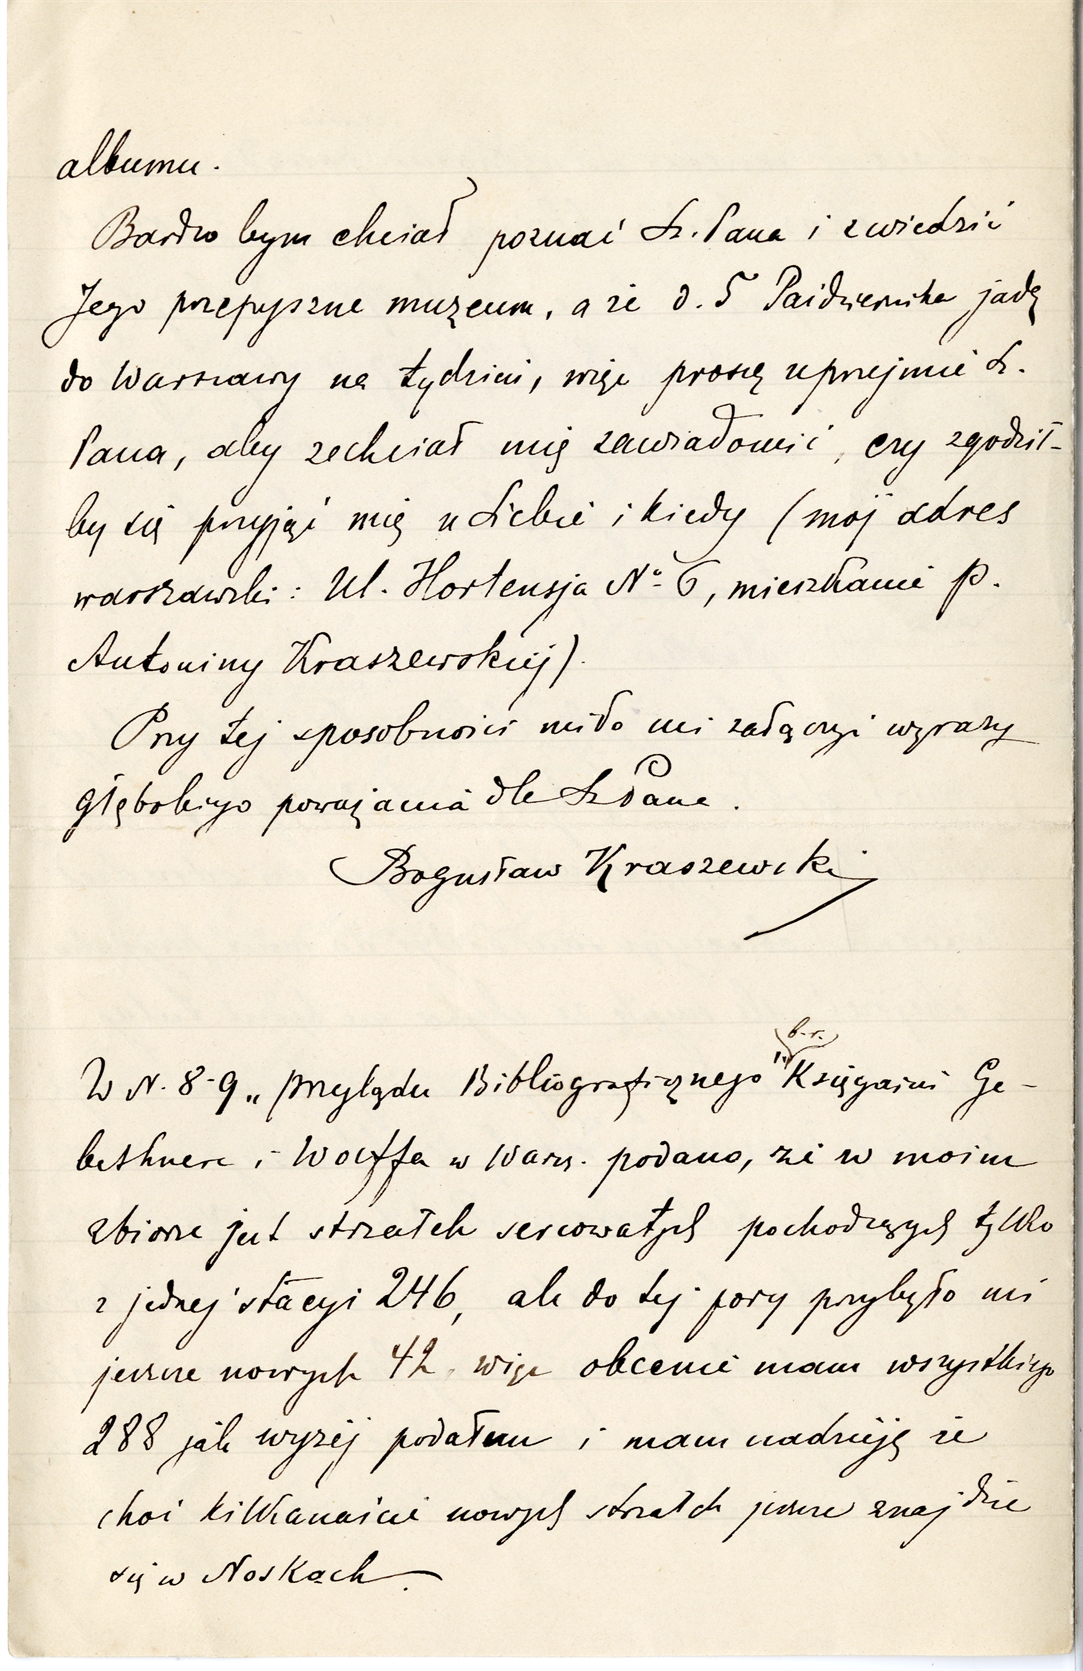 albumu.
Bardzo bym chciał poznać Sz. Pana i zwiedzić
Jego przepyszne muzeum, a że d. 5 Października jadę
do Warszawy na tydzień, więc proszę uprzejmie S.
Pana, aby zechciał mię zawiadomić, czy zgodził-
by się przyjąć mię u Siebie i kiedy (mój adres
warszawski: Ul. Hortensja No 6, mieszkanie P.
Antoniny Kraszewskiej).
Przy tej sposobności miło mi załączyć wyrazy
głębokiego poważania dla Sz Pana.
Bogusław Kraszewski
b.r.
W N. 8-9 „Przeglądu Bibliograficznego" Księgarni Ge-
bethnera i Wolffa w Warsz. podano, że w moim
zbiorze jest strzałek sercowatych pochodzących tylko
z jednej stacyi 246, ale do tej pory przybyło mi
jeszcze nowych 42, więc obecnie mam wszystkiego
288 jak wyżej podałem i mam nadzieję że
choć kilkanaście nowych strzałek jeszcze znajdzie
się w Noskach.